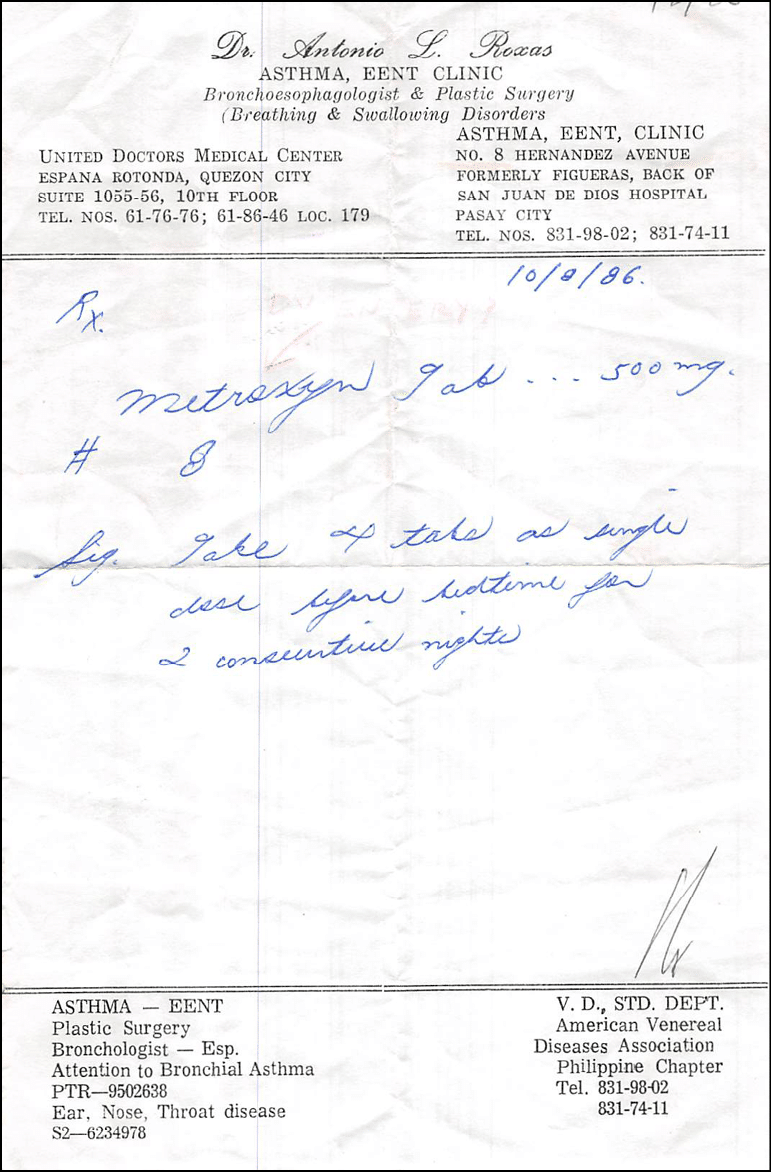 Dr. Antonio L. Roxas
ASTHMA, EENT CLINIC
Bronchoesophagologist & Plastic Surgery
(Breathing & Swallowing Disorders
UNITED DOCTORS MEDICAL CENTER
ESPANA ROTONDA, QUEZON CITY
SUITE 1055-56, 10TH FLOOR
TEL. NOS. 61-76-76; 61-86-46 LOC. 179
ASTHMA, EENT, CLINIC
NO. 8 HERNANDEZ AVENUE
FORMERLY FIGUERAS, BACK OF
SAN JUAN DE DIOS HOSPITAL
PASAY CITY
TEL. NOS. 831-98-02; 831-74-11
10/8/86.
Rx.
Metroxyn Tab ... 500 mg.
# 8
Sig. Take 4 tabs as single
dose before bedtime for
2 consecutive nights
ASTHMA — EENT
Plastic Surgery
Bronchologist — Esp.
Attention to Bronchial Asthma
PTR—9502638
Ear, Nose, Throat disease
S2—6234978
V. D., STD. DEPT.
American Venereal
Diseases Association
Philippine Chapter
Tel. 831-98-02
831-74-11